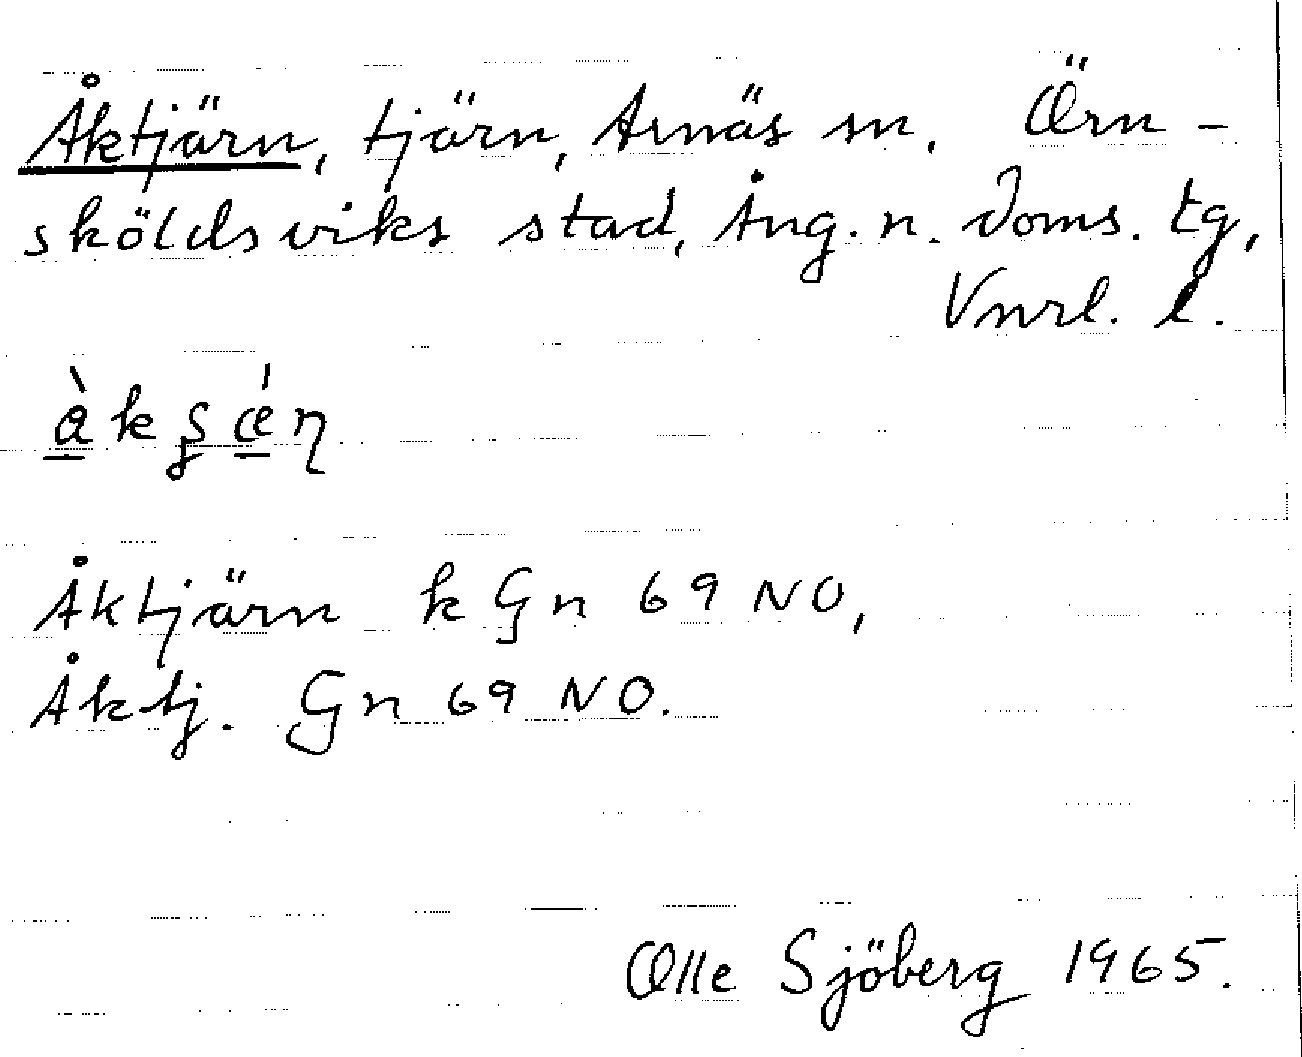 Åktjärn, tjärn, Arnäs sn, Örn-
sköldsviks stad, Ång. n. doms. tg,
Vnrl. l.
Åktjärn k Gn 69 NO,
Åktj. Gn 69 NO.
Olle Sjöberg 1965.